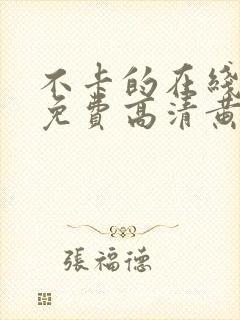 不卡的在线
免費高清黄
張福德